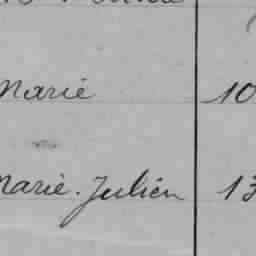 Marie 10
Marie. Julien 13